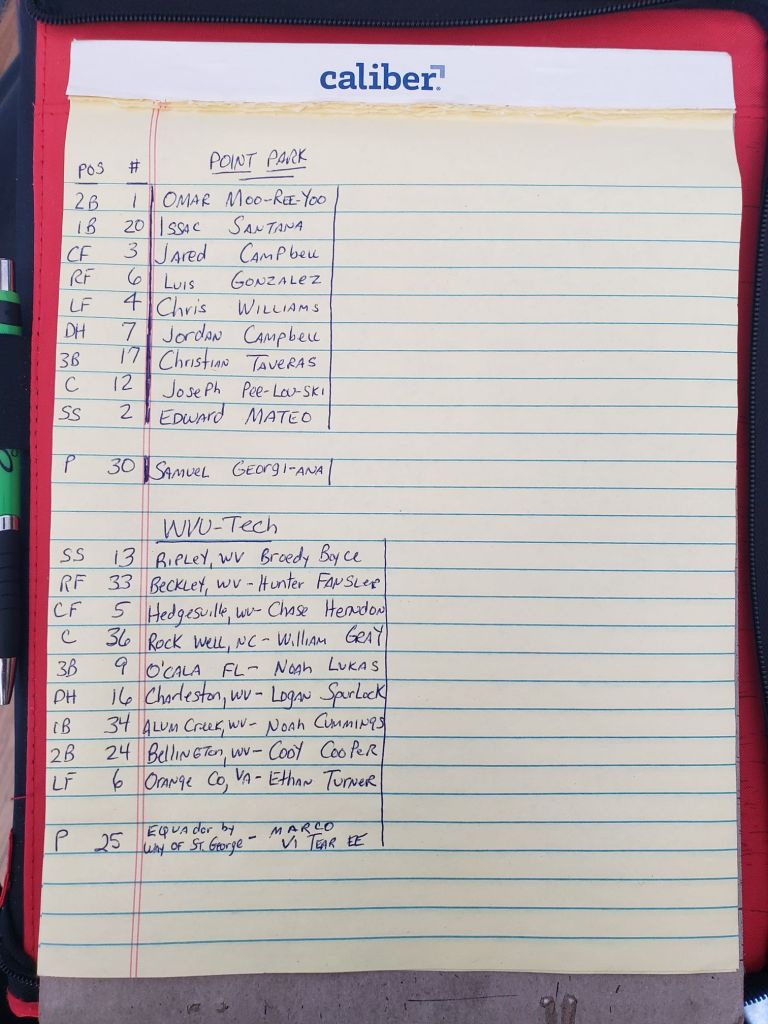 caliber
POS # POINT PARK
2B 1 OMAR MOO-REE-YOO
1B 20 ISSAC SANTANA
CF 3 Jared CAMPbell
RF 6 Luis GONZALEZ
LF 4 Chris WILLIAMS
DH 7 JordAN CAMPbell
3B 17 ChristiAN TAVERAS
C 12 JosePh PEE-LOU-SKI
SS 2 EDWARd MATEO
P 30 SAMUEL GEORGI-ANA
WVU-Tech
SS 13 RIPLEY, WV Broedy Boyce
RF 33 BECKLEY, WV - Hunter FANSLER
CF 5 Hedgesville, WV- Chase Herndon
C 36 Rock Well, NC - William GRAY
3B 9 O'CALA FL- NoAh LUKAS
DH 16 Charleston, WV- LOGAN SpurLock
1B 34 ALUM Creek, WV- NOAH CUMMINGS
2B 24 BellINGTON, WV- COOY COOPER
LF 6 ORANGE CO, VA- EThAN TURNER
P 25 EQUAdor by - MARCO
WAY OF ST. George VI TEAR EE